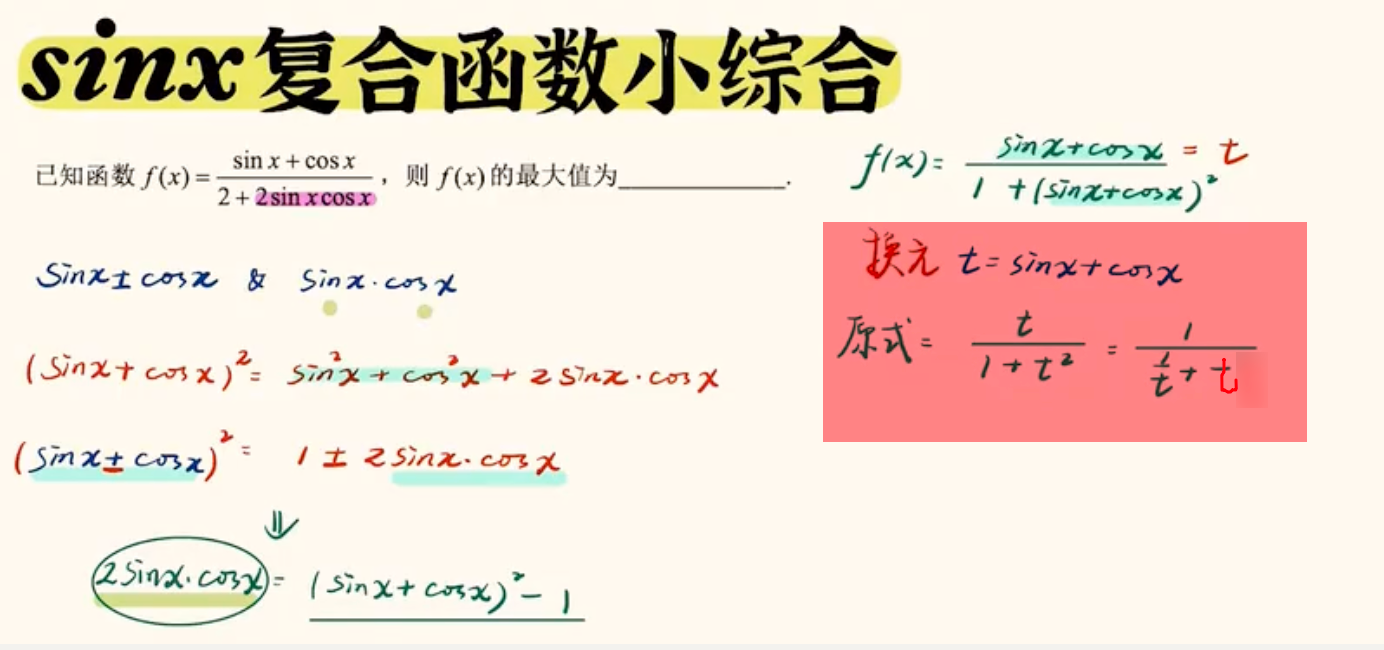 sinx复合函数小综合
已知函数 f(x) = (sin x + cos x)/(2 + 2sin x cos x)，则 f(x) 的最大值为____________.
sinx ± cosx & sinx·cosx
(sinx + cosx)² = sin²x + cos²x + 2sinx·cosx
(sinx ± cosx)² = 1 ± 2sinx·cosx
⇓
2sinx·cosx = (sinx + cosx)² - 1
f(x) = (sinx + cosx)/(1 + (sinx + cosx)²) = t
换元 t = sinx + cosx
原式 = t/(1 + t²) = 1/(1/t + t)